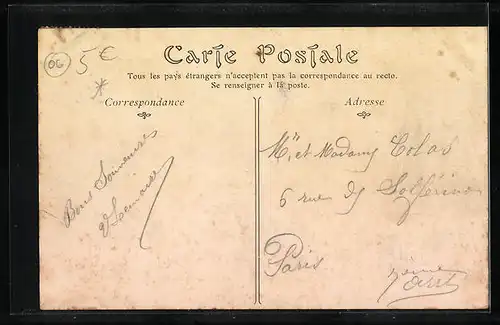 06
5€
*
Carte Postale
Tous les pays étrangers n'acceptent pas la correspondance au recto.
Se renseigner à la poste.
Correspondance
Adresse
Bons Souvenirs
Mr et Madame Colas
6 rue de Solférino
Paris
7ème
Arrt